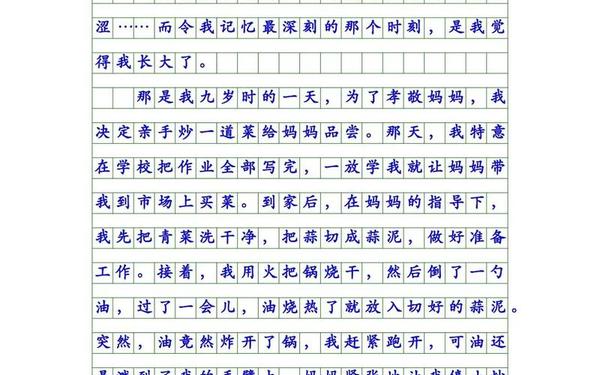 涩……而令我记忆最深刻的那个时刻，是我觉
得我长大了。
那是我九岁时的一天，为了孝敬妈妈，我
决定亲手炒一道菜给妈妈品尝。那天，我特意
在学校把作业全部写完，一放学我就让妈妈带
我到市场上买菜。到家后，在妈妈的指导下，
我先把青菜洗干净，把蒜切成蒜泥，做好准备
工作。接着，我用火把锅烧干，然后倒了一勺
油，过了一会儿，油烧热了就放入切好的蒜泥。
突然，油竟然炸开了锅，我赶紧跑开，可油还